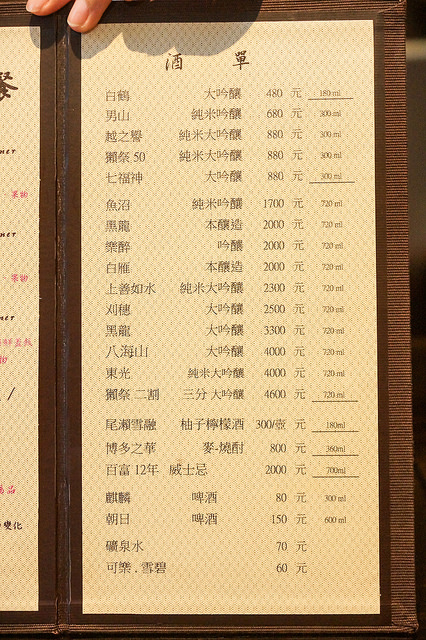 酒 單
白鶴 大吟釀 480 元 180 ml
男山 純米吟釀 680 元 300 ml
越之譽 純米大吟釀 880 元 300 ml
獺祭 50 純米大吟釀 880 元 300 ml
七福神 大吟釀 880 元 300 ml
魚沼 純米吟釀 1700 元 720 ml
黑龍 本釀造 2000 元 720 ml
樂醉 吟釀 2000 元 720 ml
白雁 本釀造 2000 元 720 ml
上善如水 純米大吟釀 2300 元 720 ml
刈穗 大吟釀 2500 元 720 ml
黑龍 大吟釀 3300 元 720 ml
八海山 大吟釀 4000 元 720 ml
東光 純米大吟釀 4000 元 720 ml
獺祭 二割 三分 大吟釀 4600 元 720 ml
尾瀨雪融 柚子檸檬酒 300/壺 元 180ml
博多之華 麥-燒酎 800 元 360ml
百富 12年 威士忌 2000 元 700ml
麒麟 啤酒 80 元 300 ml
朝日 啤酒 150 元 600 ml
礦泉水 70 元
可樂 . 雪碧 60 元
餐
果物
果物
物
品
變化